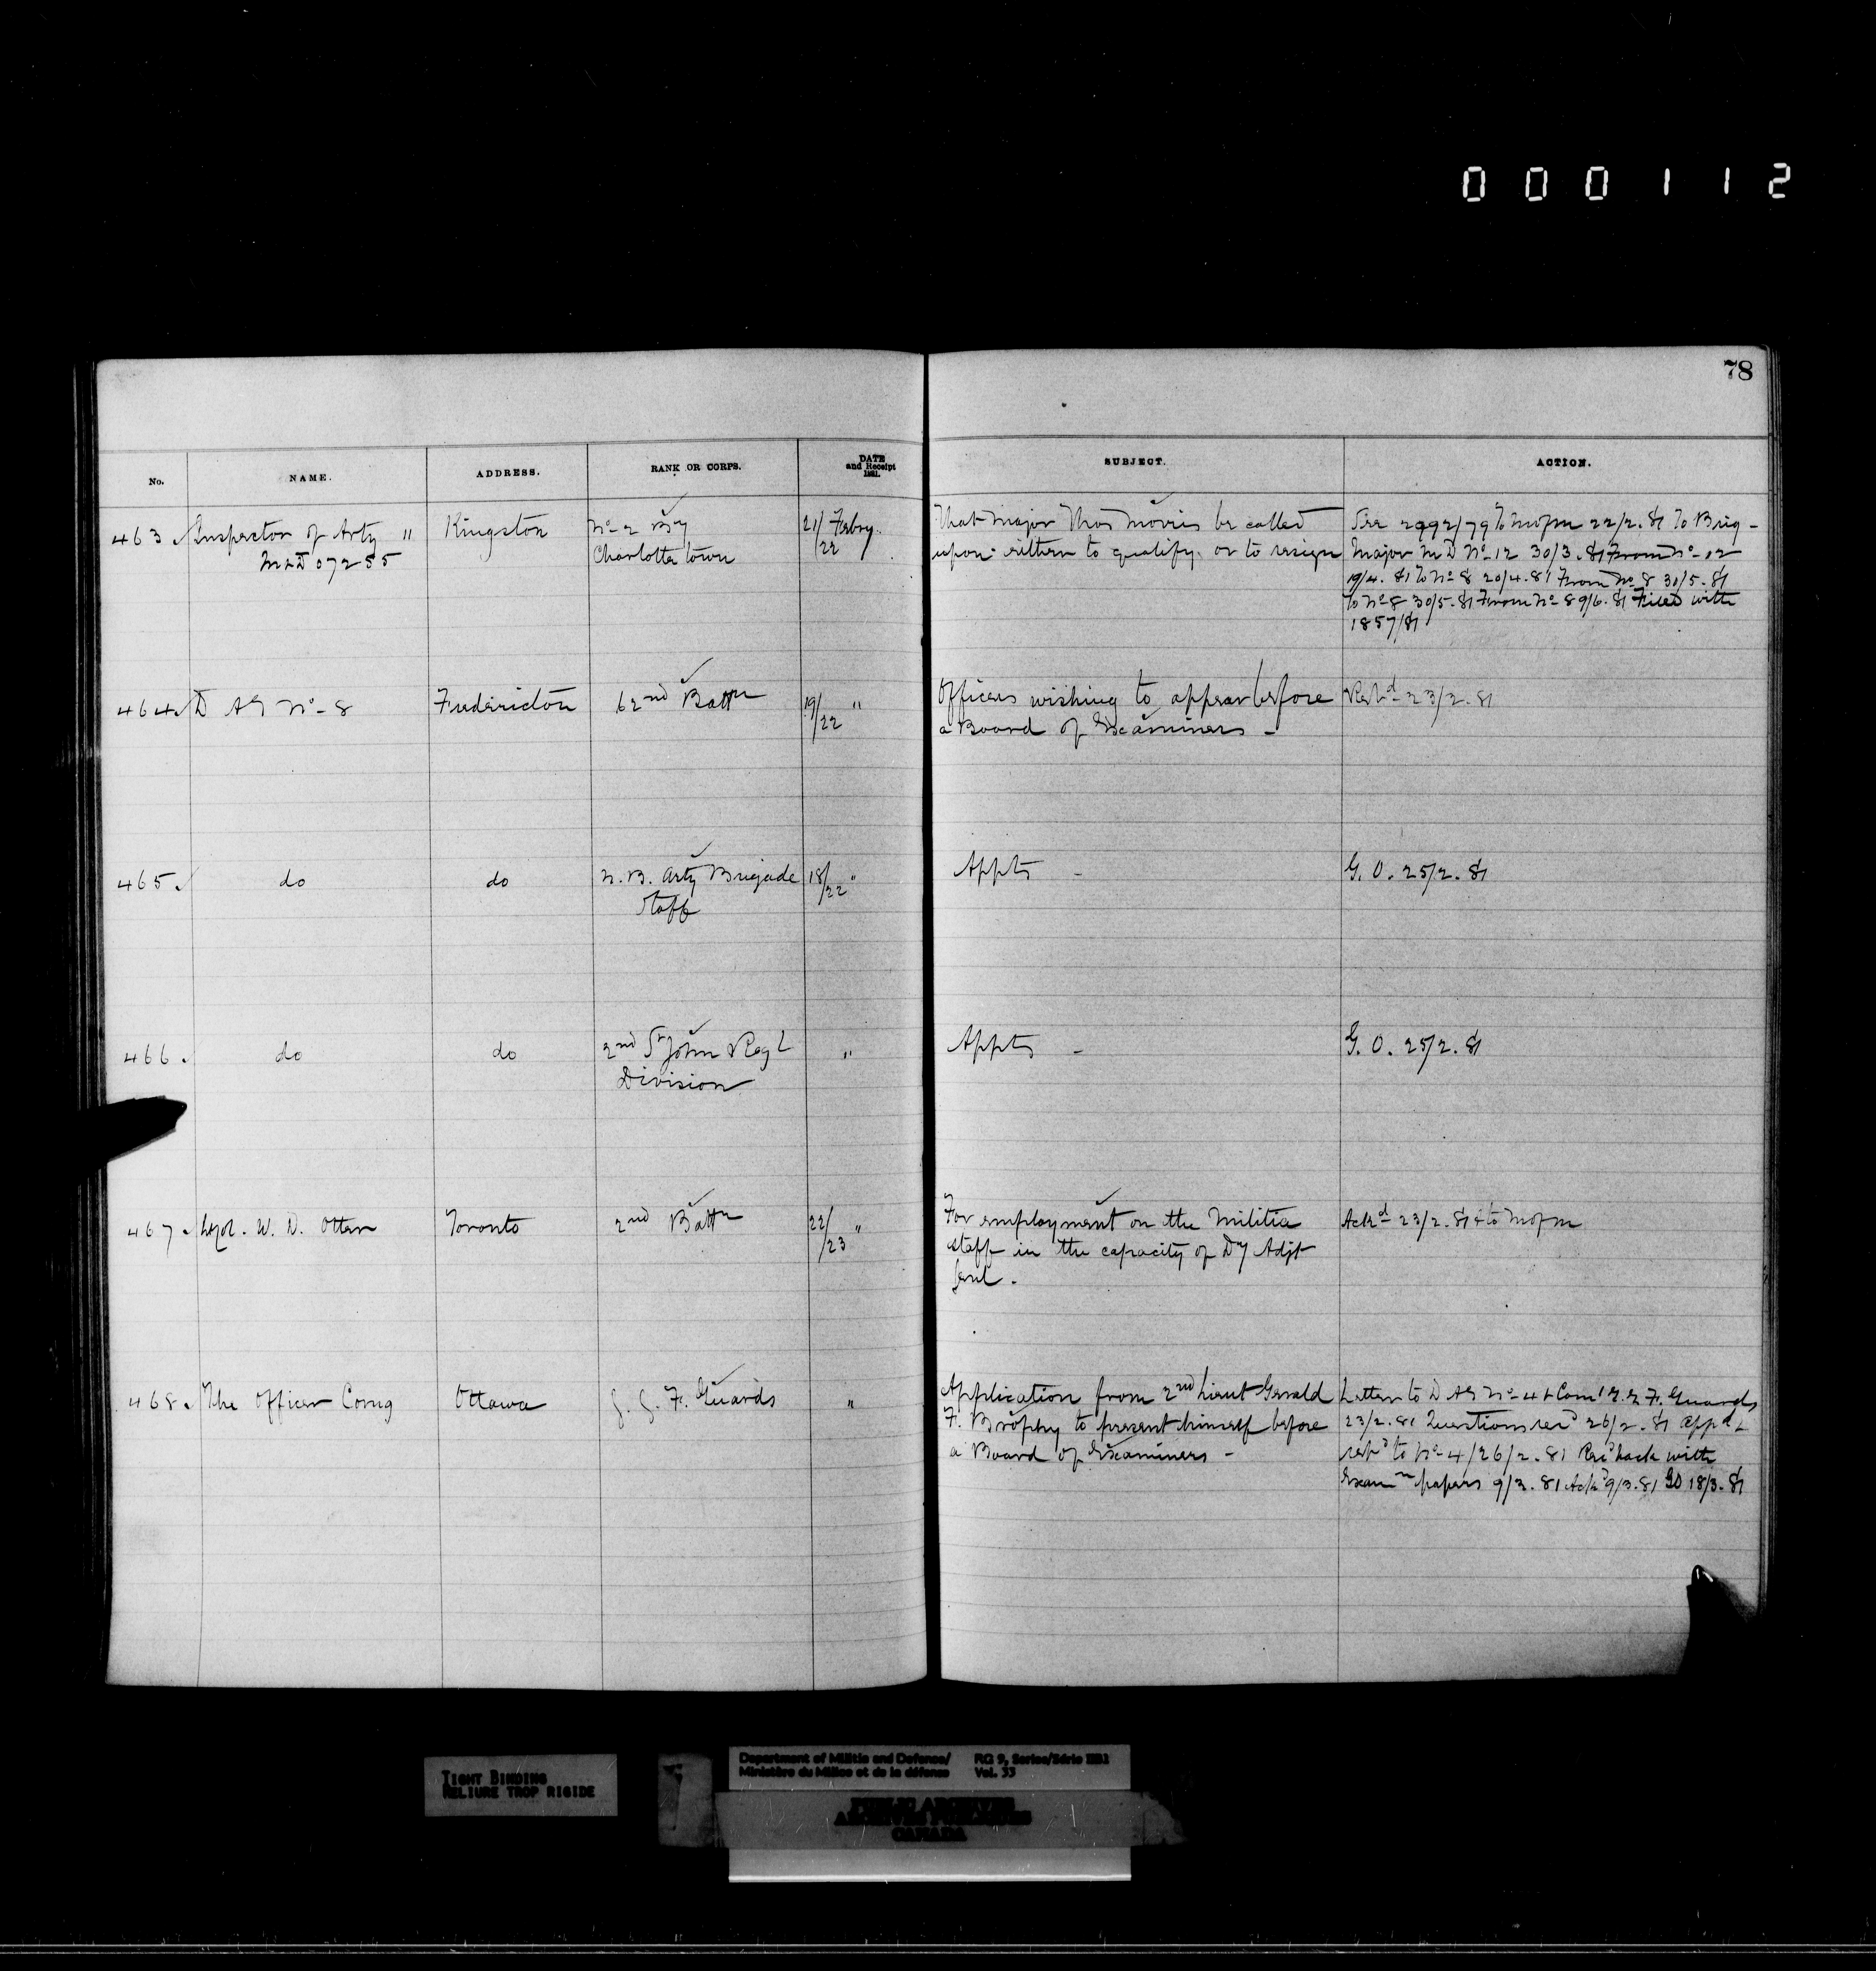 000112
78
No.
NAME.
ADDRESS.
RANK OR CORPS.
DATE
and Receipt
1881.
SUBJECT.
ACTION.
463. Inspector of Arty "
M & D 07255
Kingston
No 2 By
Charlotte town
21/22 Febry.
That Major Thos Morris be called
upon either to qualify, or to resign
See 2992/79 To Mofm 22/2.81 To Brig-
Major M D No 12 30/3.81 From No 12
19/4.81 To No 8 20/4.81 From No 8 30/5.81
To No 8 30/5.81 From No 8 9/6.81 Filed with
1857/81
464. D AG No 8
Fredericton
62nd Battn
19/22 "
Officers wishing to appear before
a Board of Examiners -
23/2.81
465. do
do
N.B. Arty Brigade
Staff
18/22 "
Appts -
G.O. 25/2.81
466. do
do
2nd St John Regl
Division
"
Appts -
G.O. 25/2.81
467. Lt Col. W. D. Otter
Toronto
2nd Battn
22/23 "
For employment on the Militia
Staff in the capacity of Dy Adjt
Genl.
Ackd 23/2.81 & to Mofm
468. The Officer Comg
Ottawa
G. G. F. Guards
"
Application from 2nd Lieut Gerald
F. Brophy to present himself before
a Board of Examiners -
Letter to D AG No 4 & Comr G.G F. Guards
23/2.81 Questions recd 26/2.81 appd &
retd to No 4/26/2.81 Recd back with
Examn papers 9/3.81 Ackd 9/3.81 GO 18/3.81
TIGHT BINDING
RELIURE TROP RIGIDE
Department of Militia and Defence/
Ministère du Milice et de la défense
RG 9, Series/Série IIB1
Vol. 33
PUBLIC ARCHIVES
ARCHIVES PUBLIQUES
CANADA